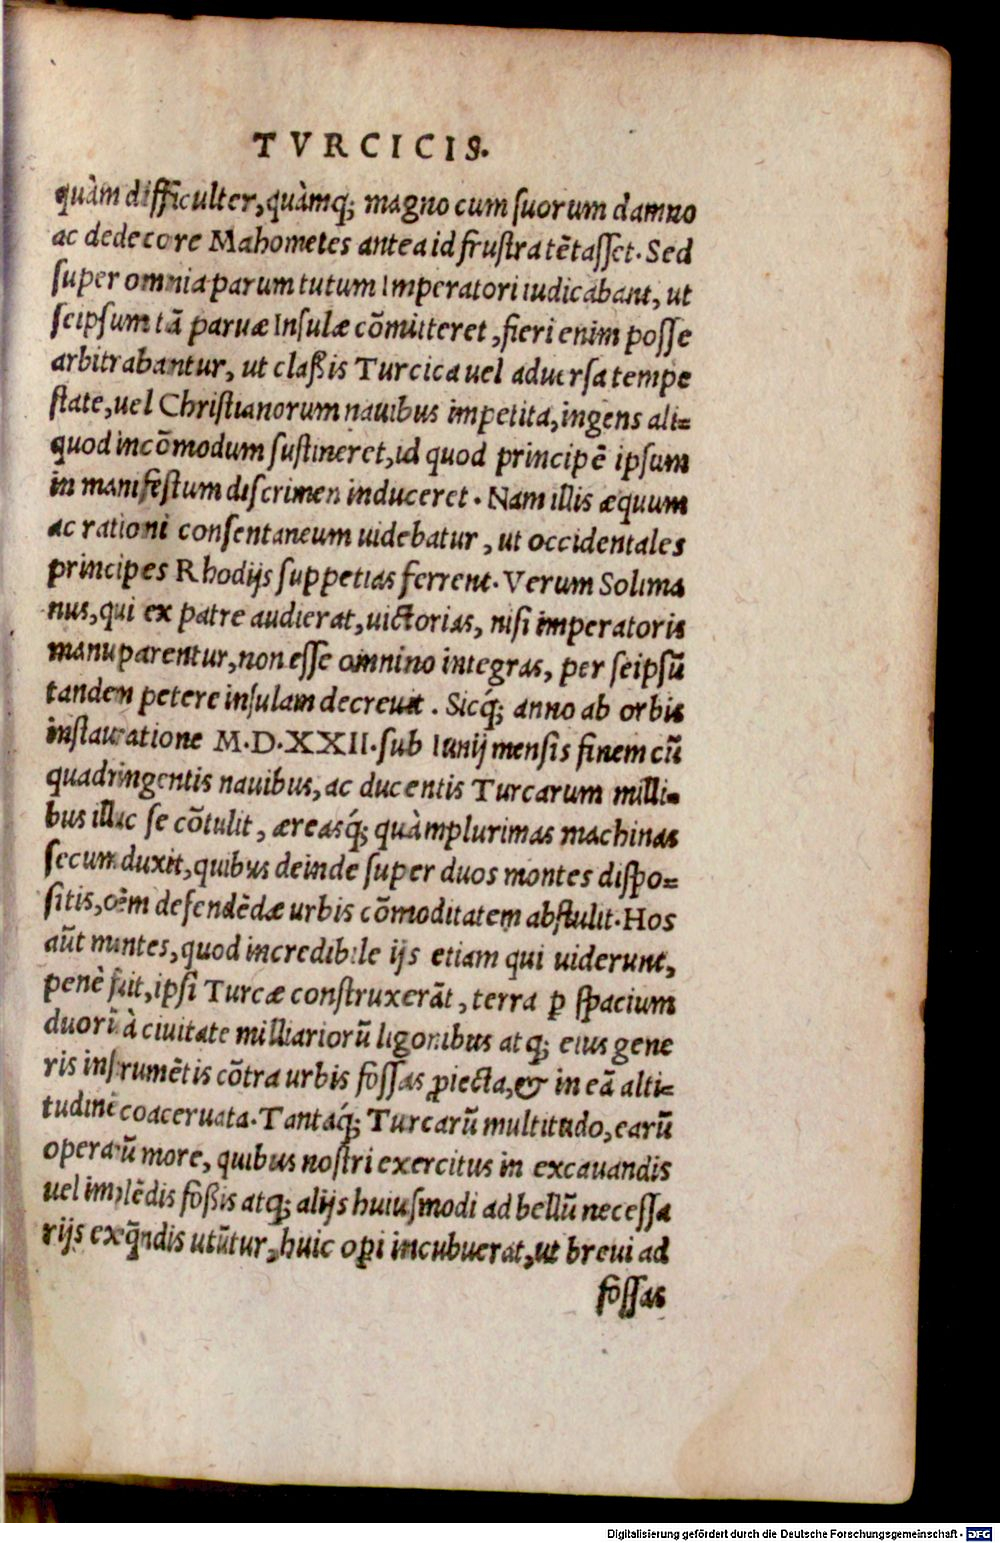 TVRCICIS.
quàm difficulter, quàmq; magno cum suorum damno
ac dedecore Mahometes antea id frustra tẽtasset. Sed
super omnia parum tutum Imperatori iudicabant, ut
seipsum tã paruæ Insulæ cõmitteret, fieri enim posse
arbitrabantur, ut claßis Turcica uel aduersa tempe
state, uel Christianorum nauibus impetita, ingens ali=
quod incõmodum sustineret, id quod principẽ ipsum
in manifestum discrimen induceret. Nam illis æquum
ac rationi consentaneum uidebatur, ut occidentales
principes Rhodijs suppetias ferrent. Verum Solima
nus, qui ex patre audierat, uictorias, nisi imperatoris
manu parentur, non esse omnino integras, per seipsũ
tandem petere insulam decreuit. Sicq́; anno ab orbis
instauratione M.D.XXII. sub Iunij mensis finem cũ
quadringentis nauibus, ac ducentis Turcarum milli=
bus illuc se cõtulit, æreasq́; quàmplurimas machinas
secum duxit, quibus deinde super duos montes dispo=
sitis, oẽm defendẽdæ urbis cõmoditatem abstulit. Hos
aũt montes, quod incredibile ijs etiam qui uiderunt,
penè fuit, ipsi Turcæ construxerãt, terra ꝑ spacium
duorũ à ciuitate milliariorũ ligonibus atq; eius gene
ris instrumẽtis cõtra urbis fossas ꝓiecta, & in eã alti=
tudinẽ coaceruata. Tantaq́; Turcarũ multitudo, earũ
operarũ more, quibus nostri exercitus in excauandis
uel implẽdis foßis atq; alijs huiusmodi ad bellũ necessa
rijs exeq̃ndis utũtur, huic oꝑi incubuerat, ut breui ad
fossas
Digitalisierung gefördert durch die Deutsche Forschungsgemeinschaft - DFG